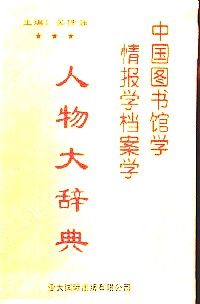 中国图书馆学
情报学档案学
人物大辞典
主编：
★ ★ ★
亚太国际出版有限公司